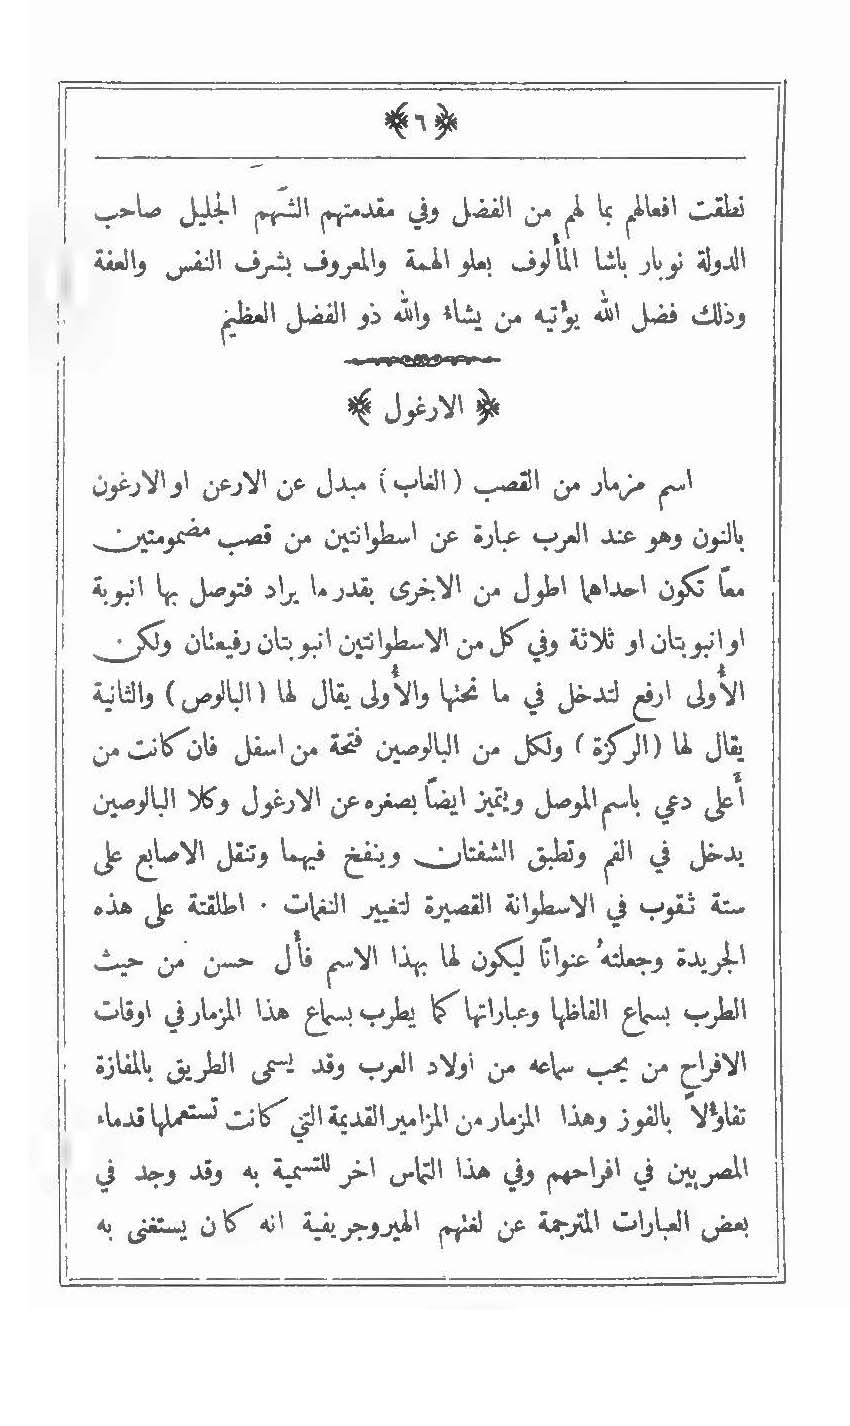 ﴿ ٦ ﴾
نطقت افعالهم بما لهم من الفضل وفي مقدمتهم الشهم الجليل صاحب
الدولة نوبار باشا المألوف بعلو الهمة والمعروف بشرف النفس والعفة
وذلك فضل الله يؤتيه من يشاء والله ذو الفضل العظيم
﴿ الارغول ﴾
اسم مزمار من القصب (الغاب) مبدل عن الارعن او الارغون
بالنون وهو عند العرب عبارة عن اسطوانتين من قصب مضمومتين
معًا تكون احداهما اطول من الاخرى بقدر ما يراد فتوصل بها انبوبة
او انبوبتان او ثلاثة وفي كل من الاسطوانتين انبوبتان رفيعتان ولكن
الأولى ارفع لتدخل في ما تحتها والأولى يقال لها (البالوص) والثانية
يقال لها (الركزة) ولكل من البالوصين فتحة من اسفل فان كانت من
أعلى دعي باسم الموصل ويتميز ايضًا بصغره عن الارغول وكلا البالوصين
يدخل في الفم وتطبق الشفتان وينفخ فيهما وتنقل الاصابع على
ستة ثقوب في الاسطوانة القصيرة لتغيير النغمات ٠ اطلقتة على هذه
الجريدة وجعلته عنوانًا ليكون لها بهذا الاسم فأل حسن من حيث
الطرب بسماع الفاظها وعباراتها كما يطرب بسماع هذا المزمار في اوقات
الافراح من يحب سماعه من اولاد العرب وقد يسمى الطريق بالمفازة
تفاؤلاً بالفوز وهذا المزمار من المزامير القديمة التي كانت تستعملها قدماء
المصريين في افراحهم وفي هذا التماس اخر للتسمية به وقد وجد في
بعض العبارات المترجمة عن لغتهم الهيروجريفية انه كان يستغنى به